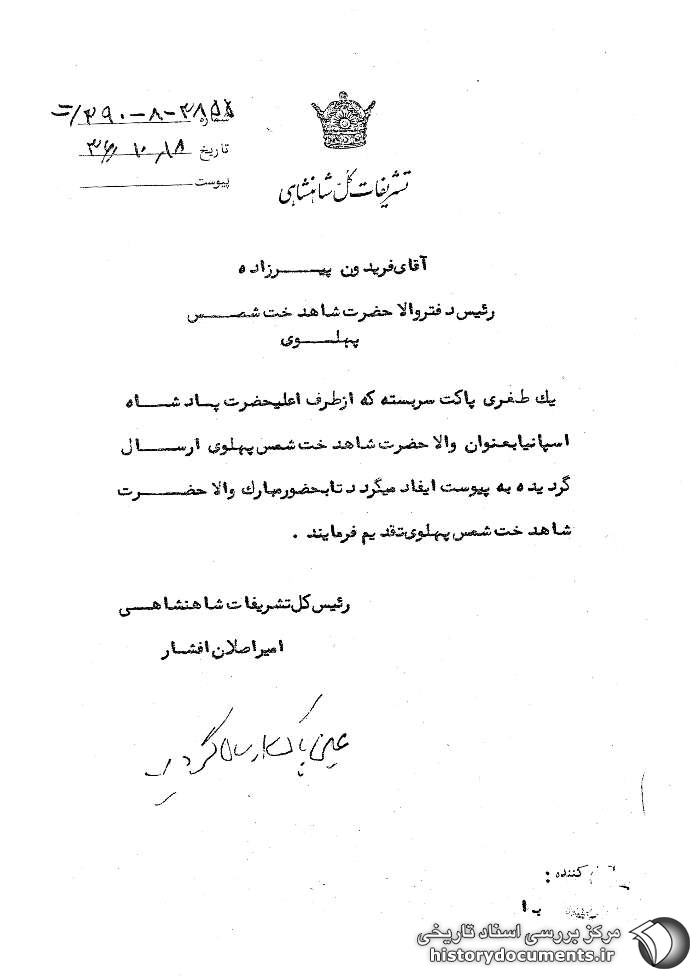 شماره ۳۸۵۵-۸-۲۹۰/ت
تاریخ ۳۶/۱۰/۱۸
پیوست
تشریفات کل شاهنشاهی
آقای فریدون پیرزاده
رئیس دفتر والاحضرت شاهدخت شمس
پهلوی
یك طغری پاکت سربسته که ازطرف اعلیحضرت پادشاه
اسپانیابعنوان والاحضرت شاهدخت شمس پهلوی ارسال
گردیده به پیوست ایفاد میگردد تابحضورمبارك والاحضرت
شاهدخت شمس پهلوی تقدیم فرمایند .
رئیس کل تشریفات شاهنشاهی
امیراصلان افشار
عین پاکت ارسال گردید
کننده :
مرکز بررسی اسناد تاریخی
historydocuments.ir